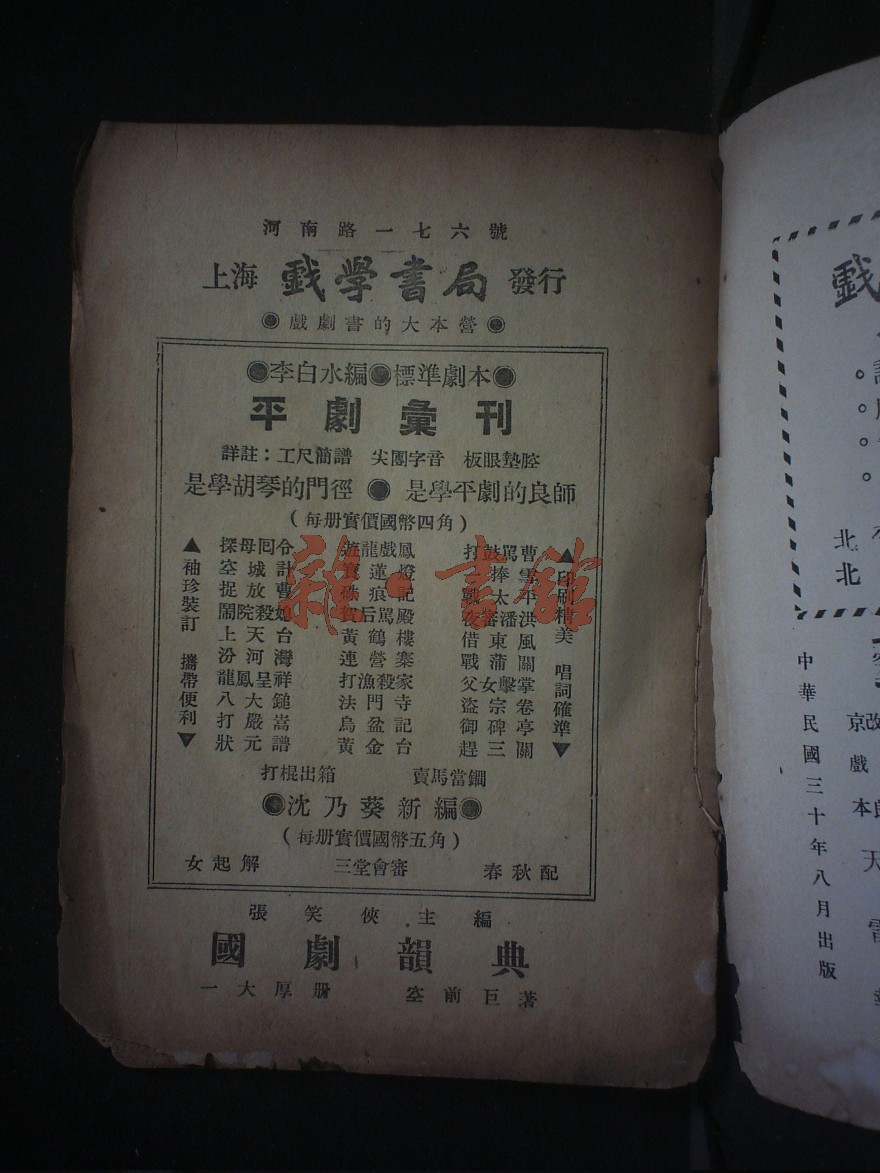 河南路一七六號
上海 戲學書局 發行
◉戲劇書的大本營◉
◉李白水編◉標準劇本◉
平劇彙刊
詳註：工尺簡譜 尖團字音 板眼墊腔
是學胡琴的門徑 ◉ 是學平劇的良師
（每册實價國幣四角）
▲印刷精美 唱詞確準▼
▲袖珍裝訂 攜帶便利▼
探母回令 遊龍戲鳳 打鼓罵曹
空城計 寶蓮燈 捧雪
捉放曹 硃痕記 戰太平
鬧院殺媳 賀后罵殿 夜審潘洪
上天台 黃鶴樓 借東風
汾河灣 連營寨 戰蒲關
龍鳳呈祥 打漁殺家 父女擊掌
八大鎚 法門寺 盜宗卷
打嚴嵩 烏盆記 御碑亭
狀元譜 黃金台 趕三關
打棍出箱 賣馬當鐧
◉沈乃葵新編◉
（每册實價國幣五角）
女起解 三堂會審 春秋配
張笑俠主編
國劇韻典
一大厚册 空前巨著
雜·書館
戲
北
北
中華民國三十年八月出版
改
京戲本
天